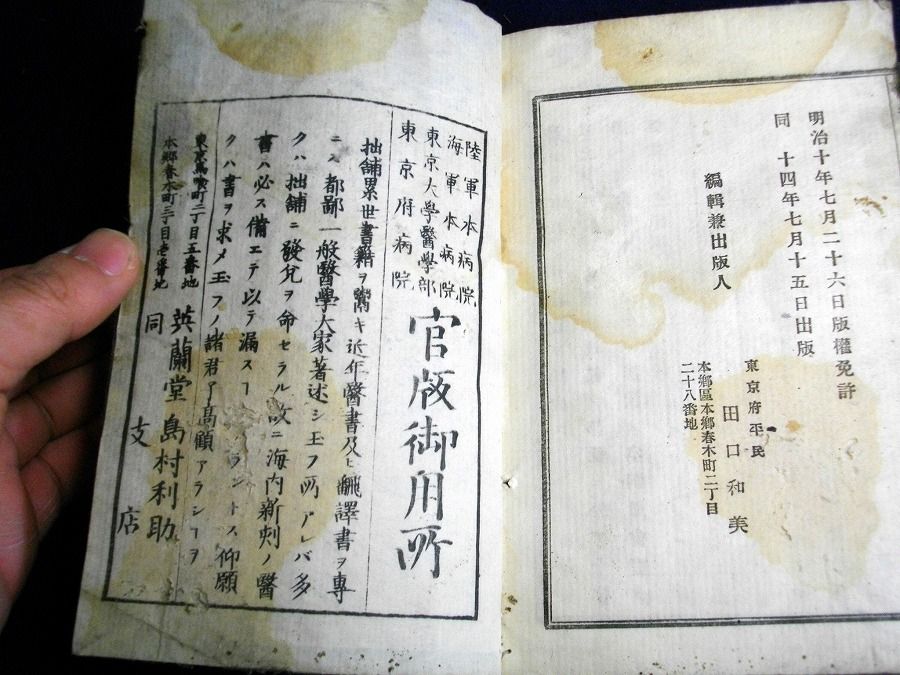 明治十年七月二十六日版權免許
同　十四年七月十五日出版
編輯兼出版人
東京府平民
田口和美
本鄉區本鄉春木町二丁目
二十八番地
陸軍本病院
海軍本病院
東京大學醫學部
東京府病院
官版御用所
拙舖累世書籍ヲ鬻キ近年醫書及ヒ飜譯書ヲ專
ニス都鄙一般醫學大家著述シ玉フ所アレバ多
クハ拙舖ニ發兌ヲ命セラル故ニ海内新刻ノ醫
書ハ必ス備エテ以テ漏スヿ ラントス仰願
クハ書ヲ求メ玉フノ諸君 高顧アランヿヲ
東京馬喰町二丁目五番地
本鄉春木町三丁目壱番地
英蘭堂 島村利助
同 支店